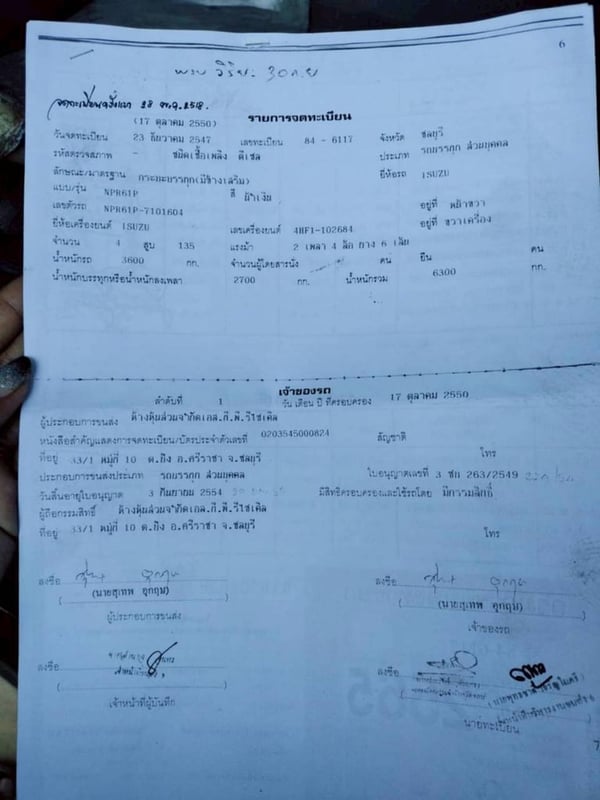 6
พรบ วิริยะ 30 ก.ย
จดทะเบียนครั้งแรก 28
(17 ตุลาคม 2550)
รายการจดทะเบียน
วันจดทะเบียน 23 ธันวาคม 2547 เลขทะเบียน 84 - 6117 จังหวัด ชลบุรี
รหัสตรวจสภาพ - ชนิดเชื้อเพลิง ดีเซล ประเภท รถบรรทุก ส่วนบุคคล
ลักษณะ/มาตรฐาน กระบะบรรทุก(มีข้างเสริม) ยี่ห้อรถ ISUZU
แบบ/รุ่น NPR61P สี ฟ้าเงิน
เลขตัวรถ NPR61P-7101604 อยู่ที่ หน้าขวา
ยี่ห้อเครื่องยนต์ ISUZU เลขเครื่องยนต์ 4HF1-102684 อยู่ที่ ขวาเครื่อง
จำนวน 4 สูบ 135 แรงม้า 2 เพลา 4 ล้อ ยาง 6 เส้น
น้ำหนักรถ 3600 กก. จำนวนผู้โดยสารนั่ง คน ยืน คน
น้ำหนักบรรทุกหรือน้ำหนักลงเพลา 2700 กก. น้ำหนักรวม 6300 กก.
เจ้าของรถ
ลำดับที่ 1 วัน เดือน ปี ที่ครอบครอง 17 ตุลาคม 2550
ผู้ประกอบการขนส่ง ห้างหุ้นส่วนจำกัดเอล.ที.พี.รีไซเคิล
หนังสือสำคัญแสดงการจดทะเบียน/บัตรประจำตัวเลขที่ 0203545000824 สัญชาติ
ที่อยู่ 33/1 หมู่ที่ 10 ต.บึง อ.ศรีราชา จ.ชลบุรี โทร
ประกอบการขนส่งประเภท รถบรรทุก ส่วนบุคคล ใบอนุญาตเลขที่ 3 ชบ 263/2549
วันสิ้นอายุใบอนุญาต 3 กันยายน 2554 มีสิทธิครอบครองและใช้รถโดย มีกรรมสิทธิ์
ผู้ถือกรรมสิทธิ์ ห้างหุ้นส่วนจำกัดเอล.ที.พี.รีไซเคิล
ที่อยู่ 33/1 หมู่ที่ 10 ต.บึง อ.ศรีราชา จ.ชลบุรี โทร
ลงชื่อ ลงชื่อ
(นายสุเทพ อุกฤษ) (นายสุเทพ อุกฤษ)
ผู้ประกอบการขนส่ง เจ้าของรถ
ลงชื่อ ลงชื่อ
เจ้าหน้าที่ผู้บันทึก นายทะเบียน
7